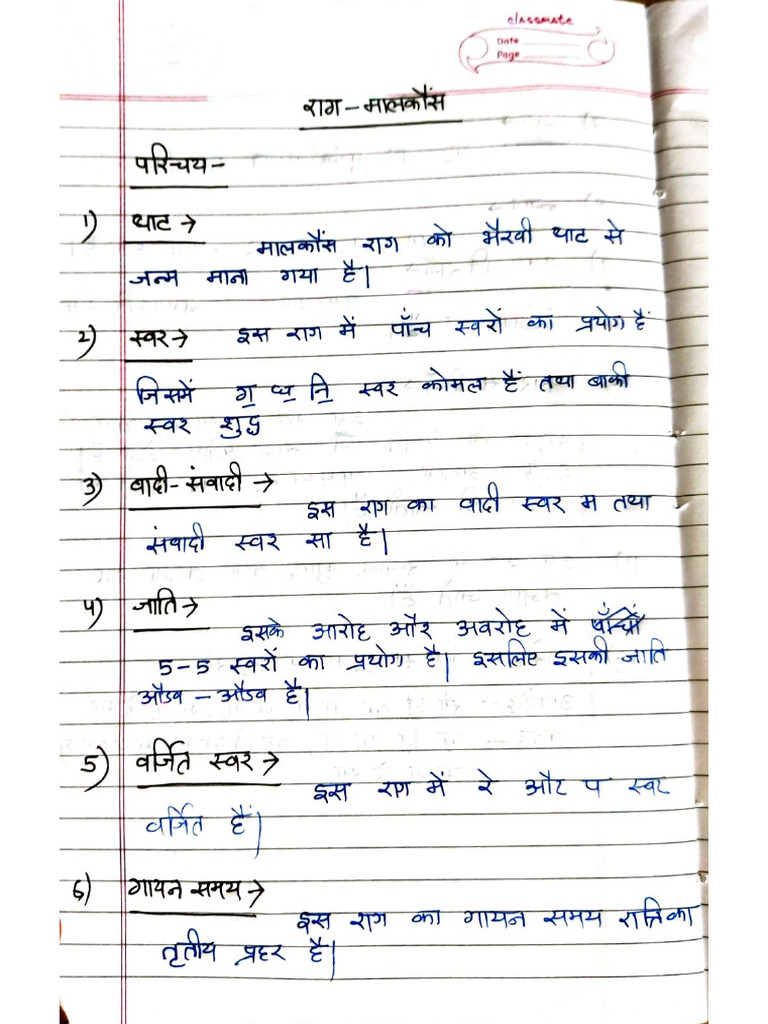 classmate
Date
Page
राग - मालकौंस
परिचय -
1) थाट →
मालकौंस राग को भैरवी थाट से
जन्म माना गया है।
2) स्वर → इस राग में पाँच स्वरों का प्रयोग हैं
जिसमें ग॒ ध॒ नि॒ स्वर कोमल हैं तथा बाकी
स्वर शुद्ध
3) वादी - संवादी →
इस राग का वादी स्वर म तथा
संवादी स्वर सा है।
4) जाति →
इसके आरोह और अवरोह में
5-5 स्वरों का प्रयोग है। इसलिए इसकी जाति
औडव - औडव है।
5) वर्जित स्वर →
इस राग में रे और प स्वर
वर्जित हैं।
6) गायन समय →
इस राग का गायन समय रात्रि का
तृतीय प्रहर है।